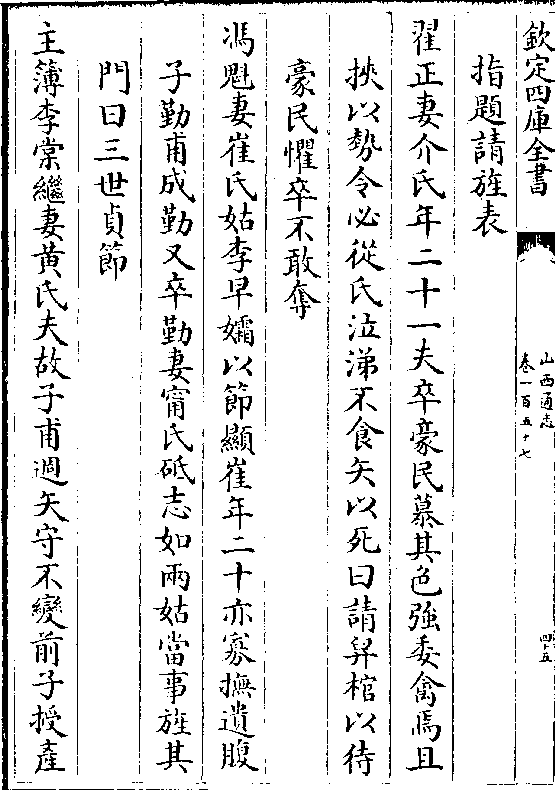 欽定四庫全書
山西通志
卷一百五十七
四十五
指題請旌表
翟正妻介氏年二十一夫卒豪民慕其色強委禽焉且
挾以勢令必從氏泣涕不食矢以死曰請舁棺以待
豪民懼卒不敢奪
馮魁妻崔氏姑李早孀以節顯崔年二十亦寡撫遺腹
子勤甫成勤又卒勤妻甯氏砥志如兩姑當事旌其
門曰三世貞節
主簿李棠繼妻黃氏夫故子甫週矢守不變前子授產